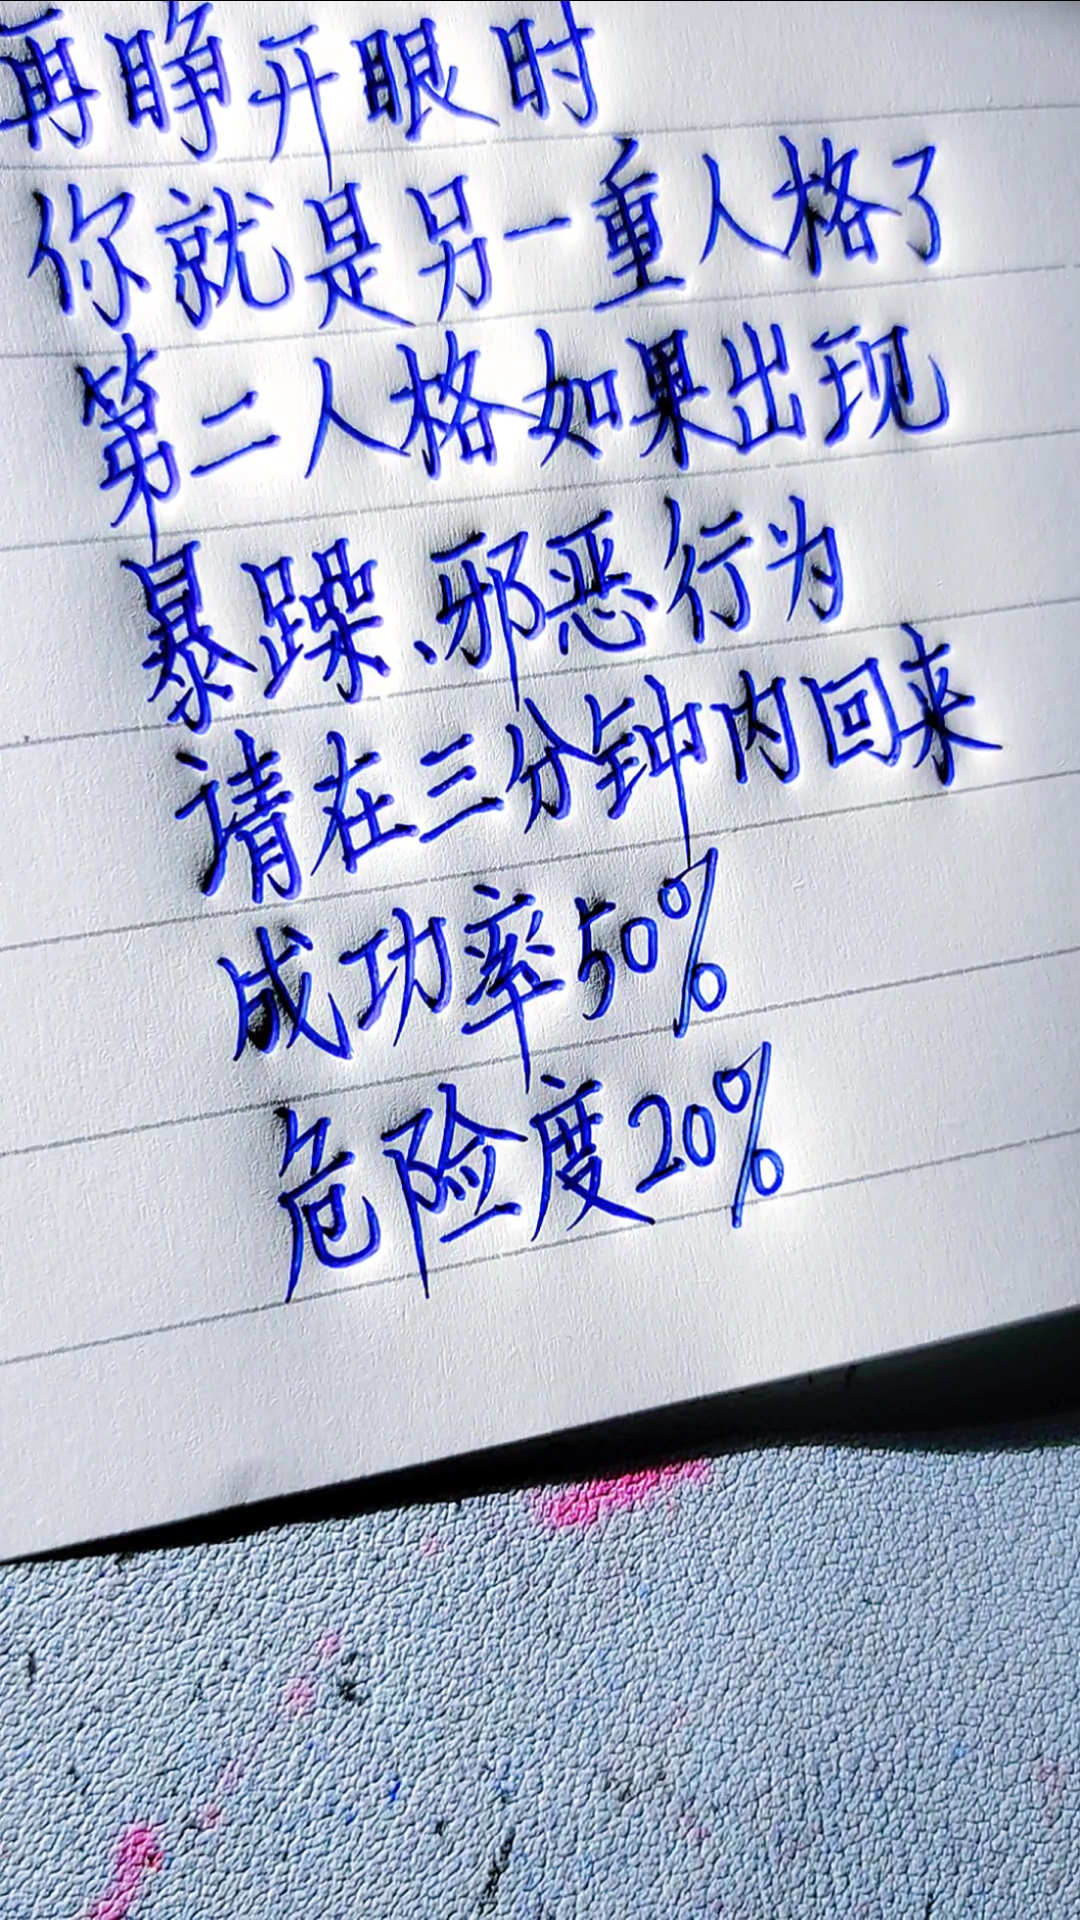 再睁开眼时
你就是另一重人格了
第二人格如果出现
暴躁、邪恶行为
请在三分钟内回来
成功率50%
危险度20%